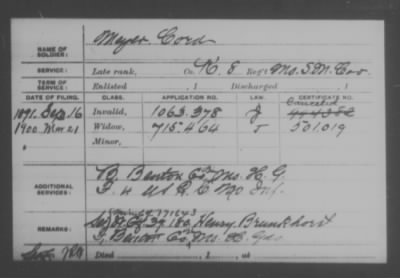 Meyer Cord
NAME OF SOLDIER:
SERVICE: Late rank, Co. K. 8 Reg't Mo. S. M. Cav.
TERM OF SERVICE: Enlisted , 1 Discharged , 1
DATE OF FILING. CLASS. APPLICATION NO. LAW. CERTIFICATE NO.
Canceled
1891 Sep 16 Invalid, 1063.378
1900 Mar 21 Widow, 715.464 501.019
Minor,
ADDITIONAL SERVICES:
B, Benton Co Mo. H. G.
Mo Inf.
171643
REMARKS: Henry Brunkhorst
Benton Co Mo. H. Gds
Died , 1 , at